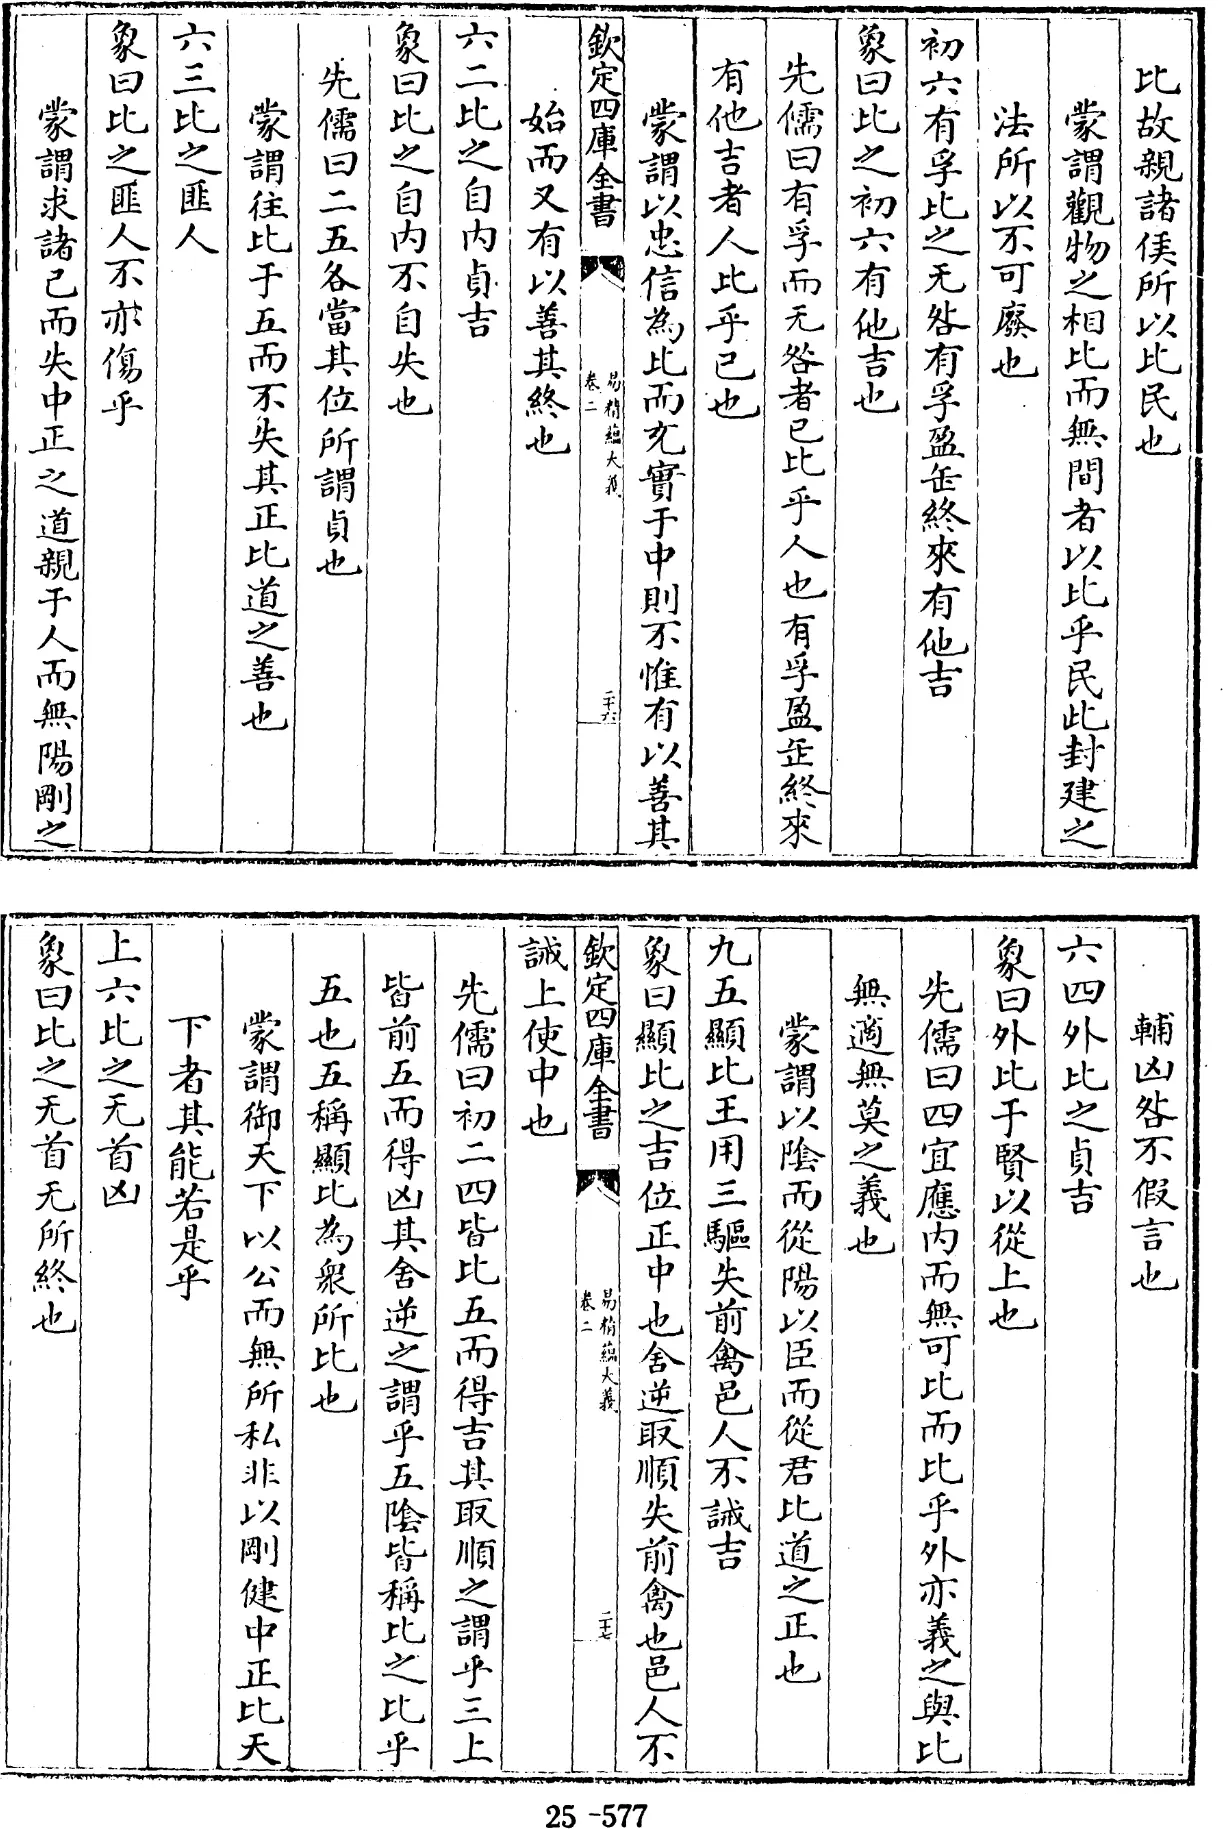 比故親諸侯所以比民也
蒙謂觀物之相比而無間者以比乎民此封建之
法所以不可廢也
初六有孚比之无咎有孚盈缶終來有他吉
象曰比之初六有他吉也
先儒曰有孚而无咎者己比乎人也有孚盈缶終來
有他吉者人比乎己也
蒙謂以忠信為比而充實于中則不惟有以善其
欽定四庫全書
易精蘊大義
卷二
二十六
始而又有以善其終也
六二比之自内貞吉
象曰比之自内不自失也
先儒曰二五各當其位所謂貞也
蒙謂往比于五而不失其正比道之善也
六三比之匪人
象曰比之匪人不亦傷乎
蒙謂求諸己而失中正之道親于人而無陽剛之
輔凶咎不假言也
六四外比之貞吉
象曰外比于賢以從上也
先儒曰四宜應内而無可比而比乎外亦義之與比
無適無莫之義也
蒙謂以陰而從陽以臣而從君比道之正也
九五顯比王用三驅失前禽邑人不誡吉
象曰顯比之吉位正中也舍逆取順失前禽也邑人不
欽定四庫全書
易精蘊大義
卷二
二十七
誡上使中也
先儒曰初二四皆比五而得吉其取順之謂乎三上
皆前五而得凶其舍逆之謂乎五陰皆稱比之比乎
五也五稱顯比為衆所比也
蒙謂御天下以公而無所私非以剛健中正比天
下者其能若是乎
上六比之无首凶
象曰比之无首无所終也
25-577